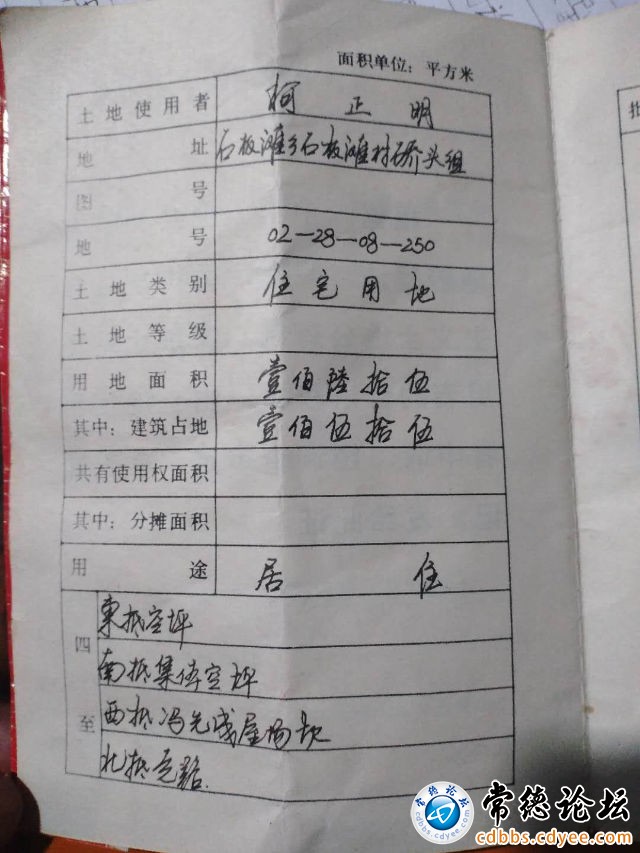 面积单位：平方米
土地使用者 柯正明
地址 石板滩乡石板滩村石桥头组
图号
地号 02-28-08-250
土地类别 住宅用地
土地等级
用地面积 壹佰陆拾伍
其中：建筑占地 壹佰伍拾伍
共有使用权面积
其中：分摊面积
用途 居住
四至
東抵空坪
南抵集体空坪
西抵冯先成屋场坎
北抵走路.
批
常德论坛
cdbbs.cdyee.com